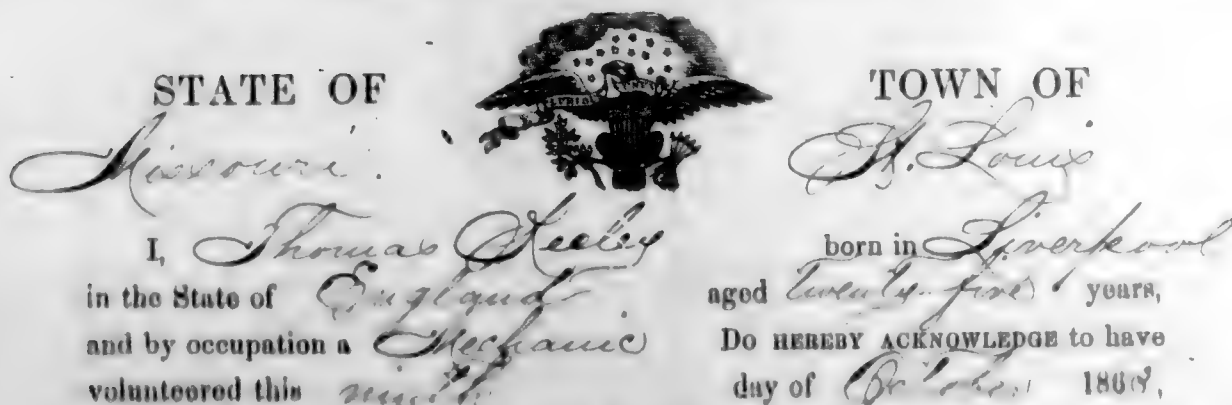 STATE OF TOWN OF
Missouri St. Louis
I, Thomas born in Liverpool
in the State of England aged twenty-five years,
and by occupation a Mechanic Do HEREBY ACKNOWLEDGE to have
volunteered this ninth day of October